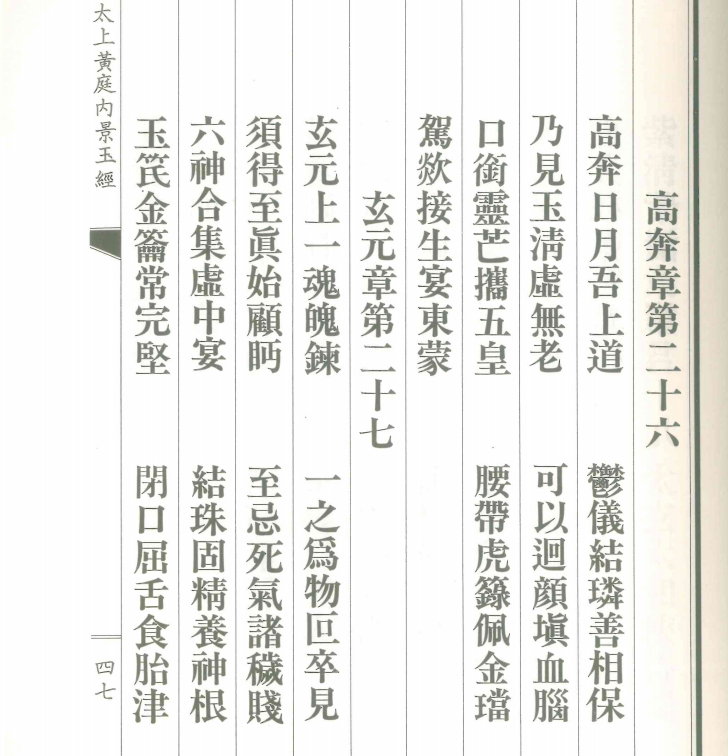 高奔章第二十六
高奔日月吾上道　鬱儀結璘善相保
乃見玉淸虛無老　可以迴顔塡血腦
口銜靈芒攜五皇　腰帶虎籙佩金璫
駕欻接生宴東蒙
玄元章第二十七
玄元上一魂魄鍊　一之爲物叵卒見
須得至眞始顧眄　至忌死氣諸穢賤
六神合集虛中宴　結珠固精養神根
玉笢金籥常完堅　閉口屈舌食胎津
太上黃庭內景玉經
四七